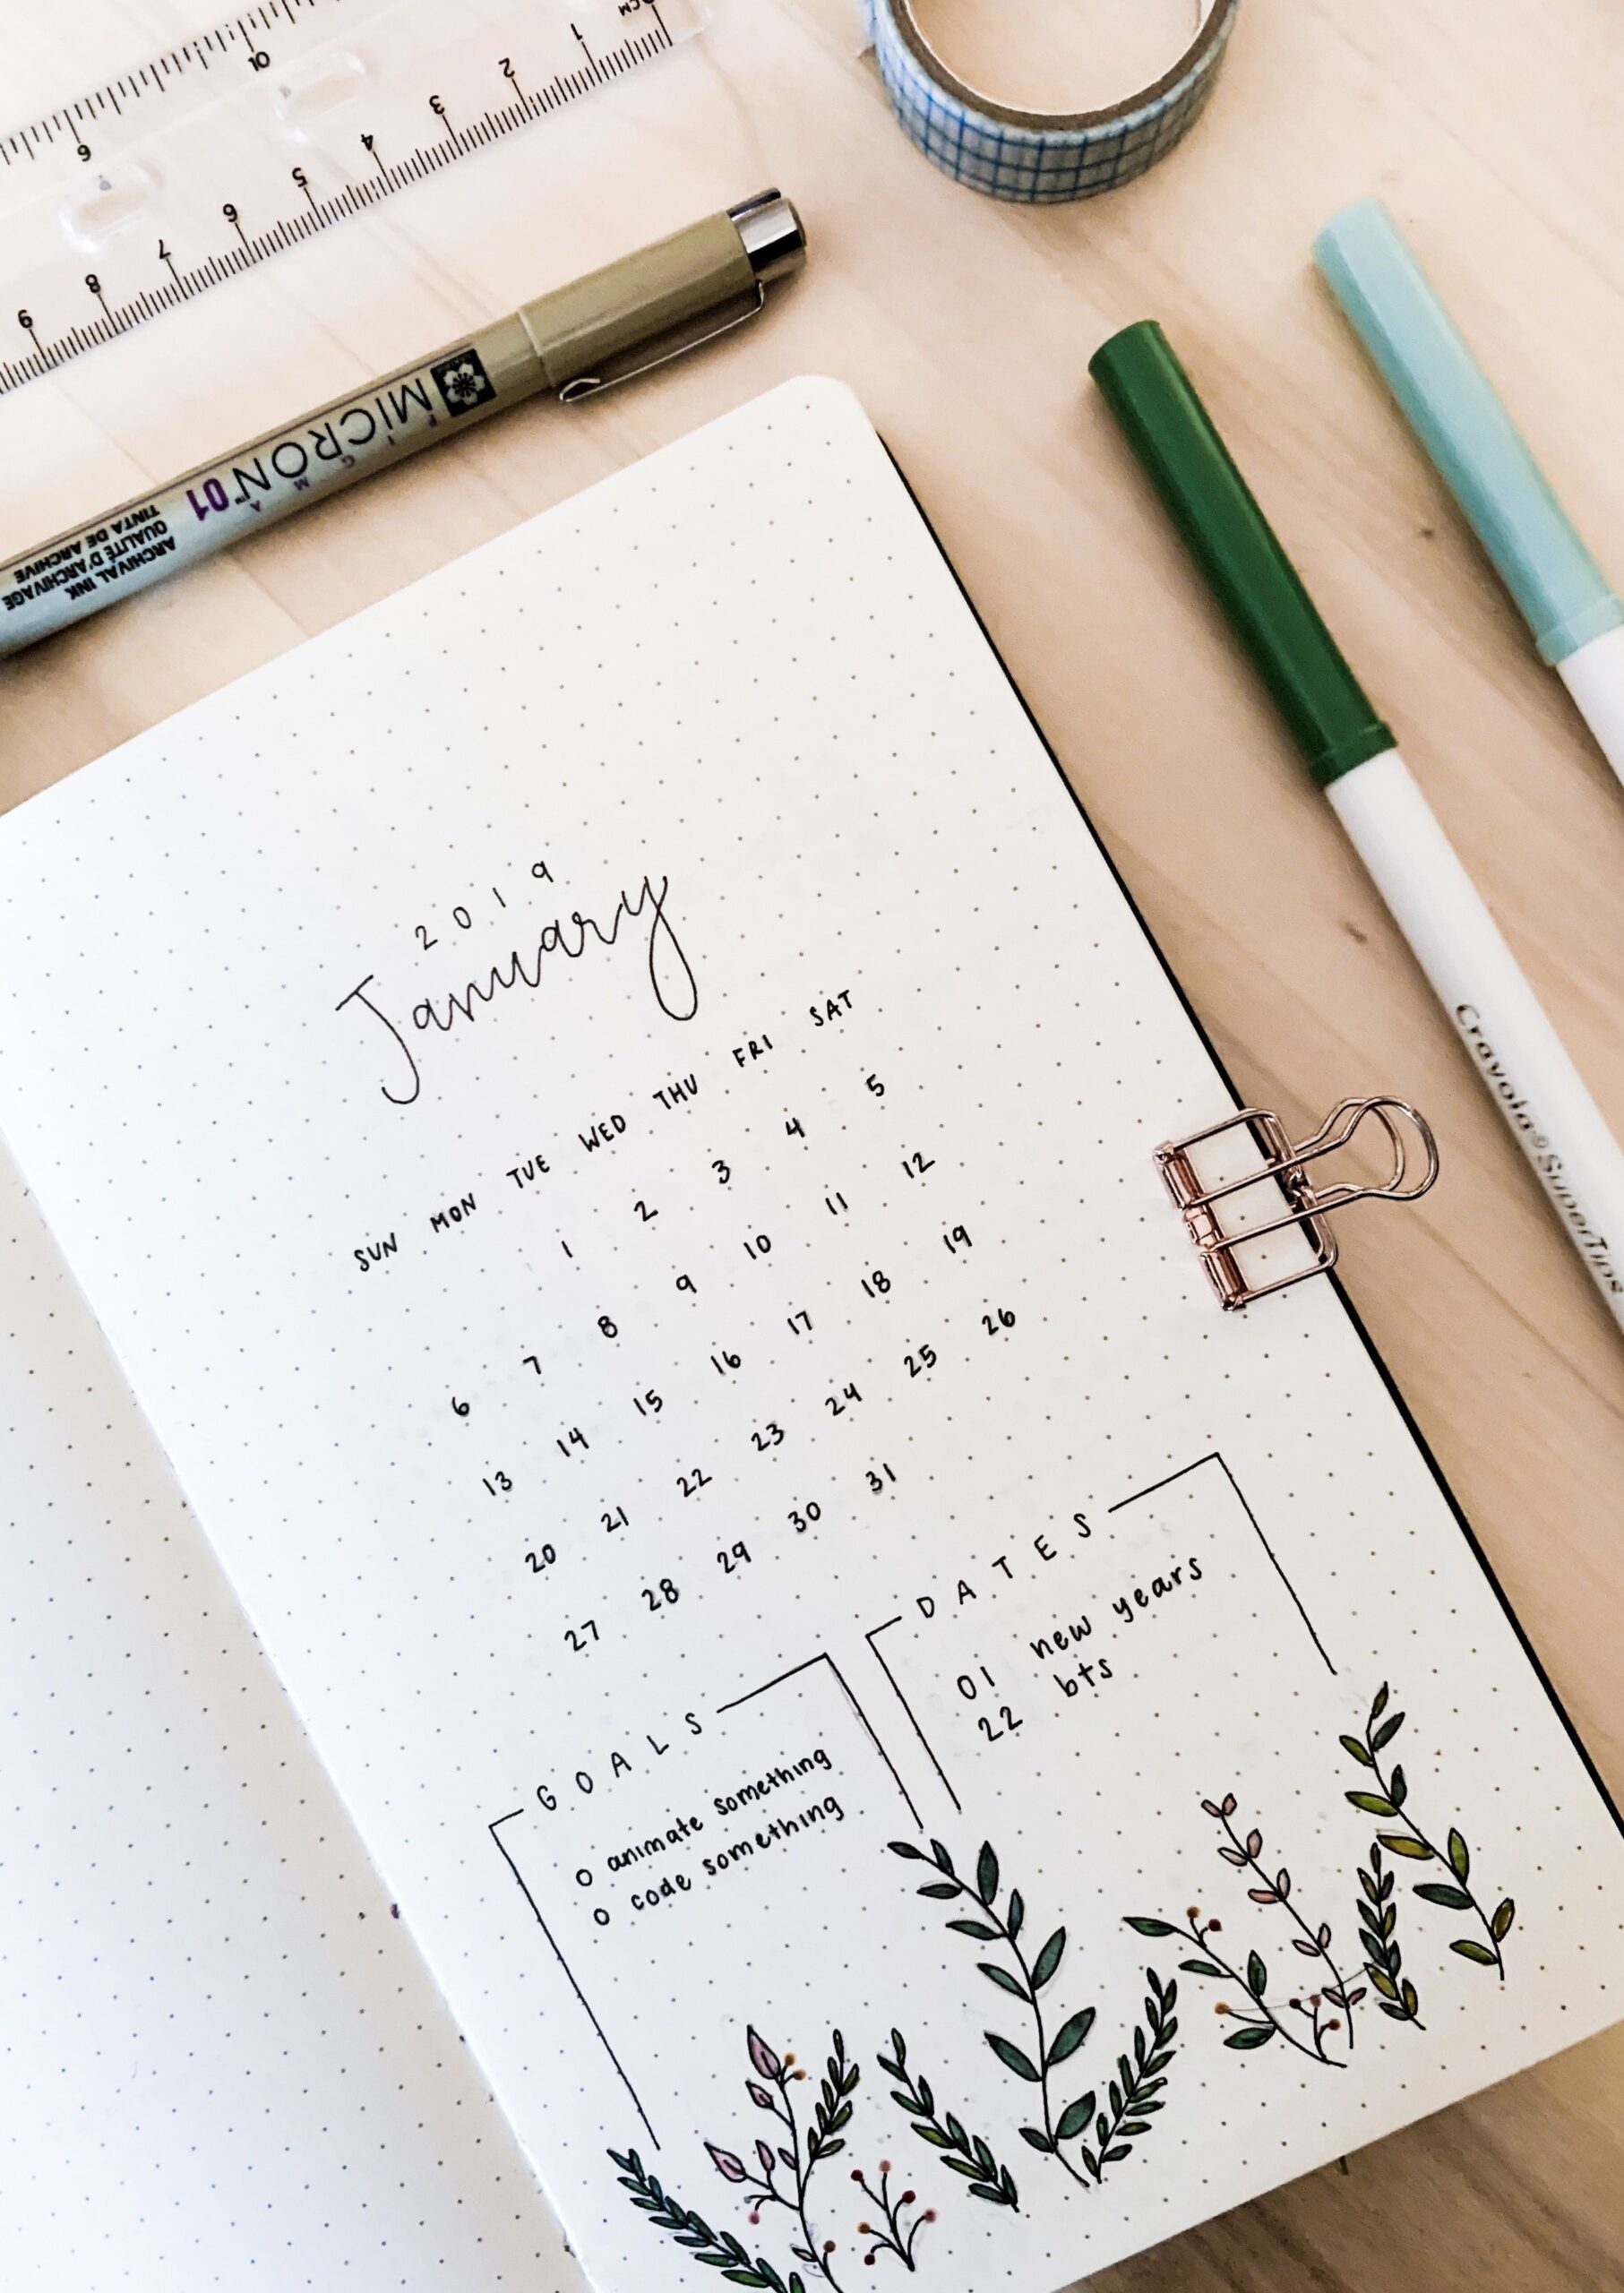 CM
1
2
3
4
5
6
7
8
9
10
9
MICRON™ 01
PIGMA
ARCHIVAL INK
QUALITÉ D'ARCHIVAGE
TINTA DE ARCHIVE
Crayola® SuperTips
2019
January
SUN MON TUE WED THU FRI SAT
1 2 3 4 5
6 7 8 9 10 11 12
13 14 15 16 17 18 19
20 21 22 23 24 25 26
27 28 29 30 31
GOALS
o animate something
o code something
DATES
01 new years
22 bts